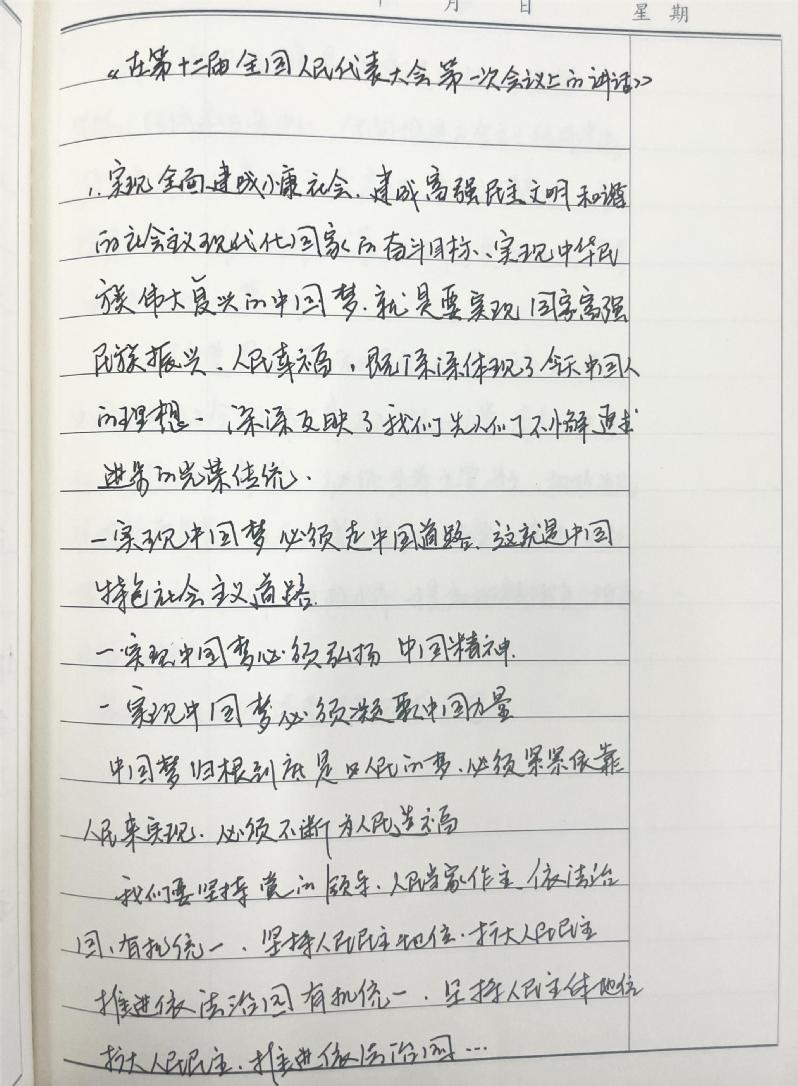 月 日 星期
《在第十二届全国人民代表大会第一次会议上的讲话》
1、实现全面建成小康社会、建成富强民主文明和谐
的社会主义现代化国家的奋斗目标、实现中华民
族伟大复兴的中国梦、就是要实现国家富强
民族振兴、人民幸福，既深深体现了今天中国人
的理想、深深反映了我们先人们不懈追求
进步的光荣传统、
一实现中国梦必须走中国道路、这就是中国
特色社会主义道路.
一实现中国梦必须弘扬中国精神.
一实现中国梦必须凝聚中国力量
中国梦归根到底是人民的梦、必须紧紧依靠
人民来实现、必须不断为人民造福
我们要坚持党的领导、人民当家作主 依法治
国、有机统一、坚持人民民主地位、扩大人民民主
推进依法治国有机统一、坚持人民主体地位
扩大人民民主、推进依法治国…